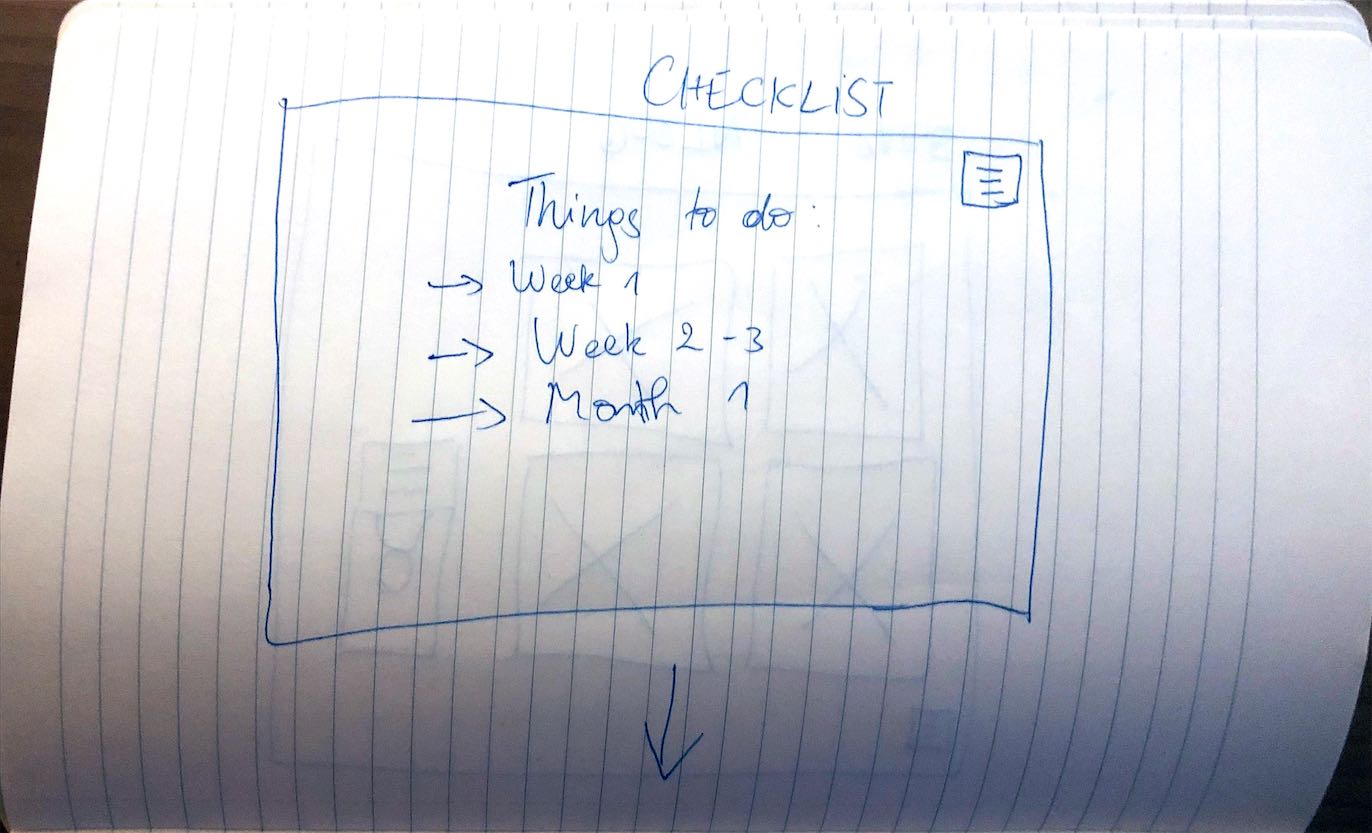 CHECKLIST
Things to do:
→ Week 1
→ Week 2-3
→ Month 1